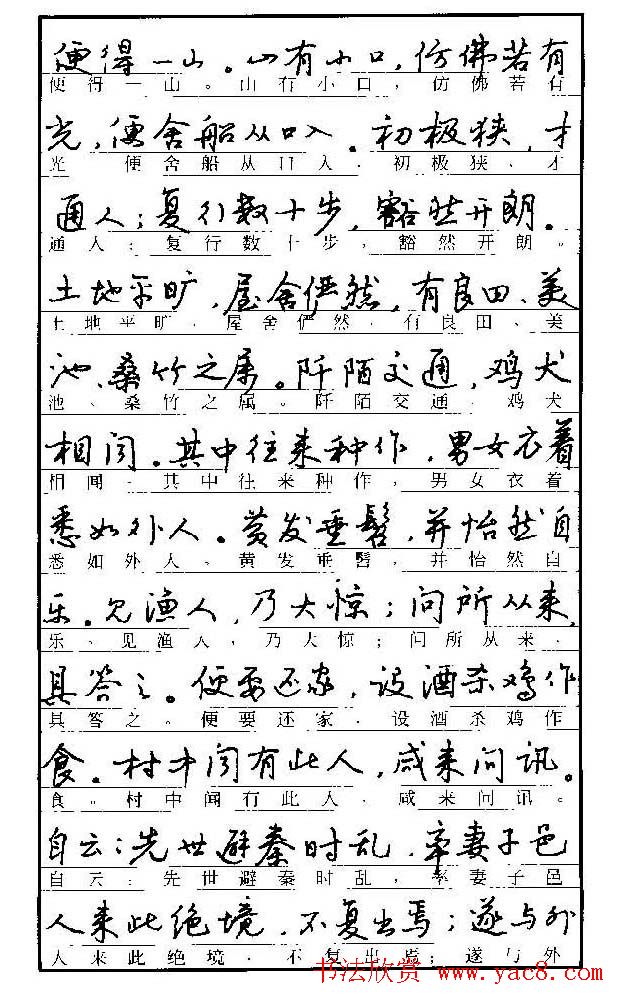 便得一山。山有小口，仿佛若有
便得一山。山有小口，仿佛若有
光，便舍船从口入。初极狭，才
光，便舍船从口入。初极狭，才
通人；复行数十步，豁然开朗。
通人；复行数十步，豁然开朗。
土地平旷，屋舍俨然，有良田、美
土地平旷，屋舍俨然，有良田、美
池、桑竹之属。阡陌交通，鸡犬
池、桑竹之属。阡陌交通，鸡犬
相闻。其中往来种作，男女衣着
相闻。其中往来种作，男女衣着
悉如外人。黄发垂髫，并怡然自
悉如外人。黄发垂髫，并怡然自
乐。见渔人，乃大惊；问所从来，
乐。见渔人，乃大惊；问所从来，
具答之。便要还家，设酒杀鸡作
具答之。便要还家，设酒杀鸡作
食。村中闻有此人，咸来问讯。
食。村中闻有此人，咸来问讯。
自云：先世避秦时乱，率妻子邑
自云：先世避秦时乱，率妻子邑
人来此绝境，不复出焉；遂与外
人来此绝境，不复出焉；遂与外
书法欣赏 www.yac8.com